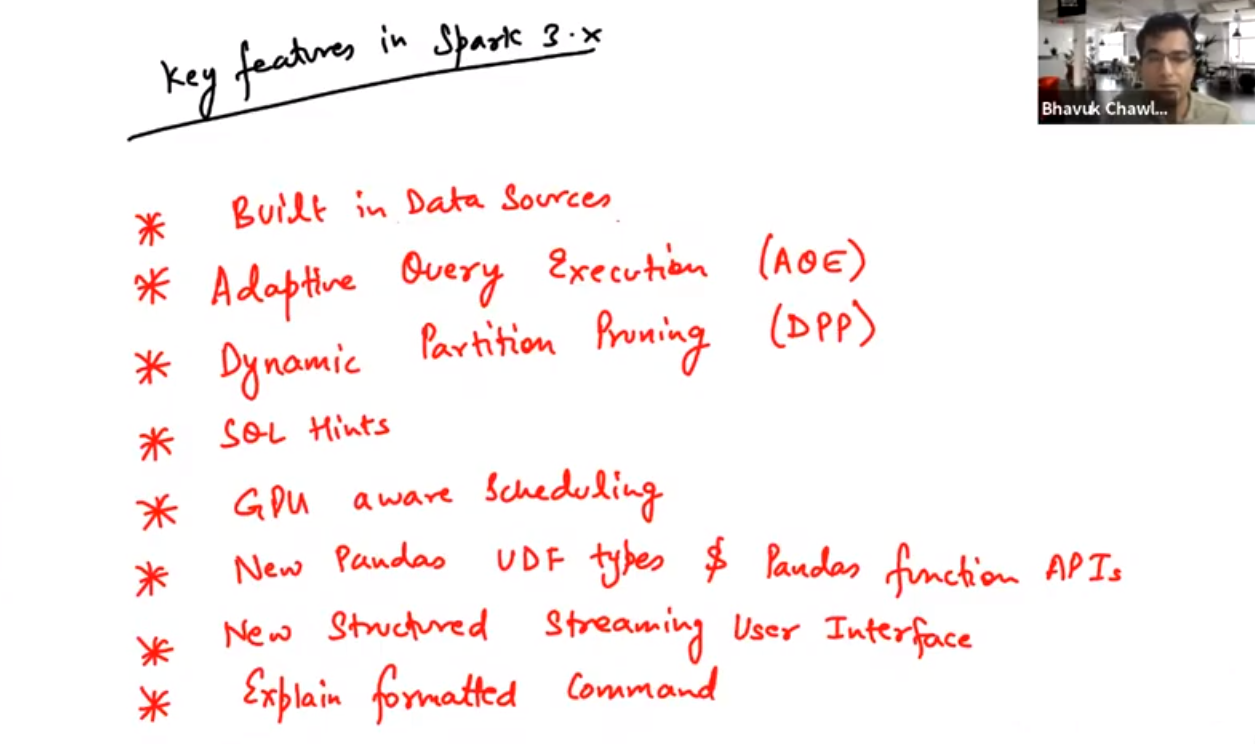 Key features in Spark 3.x
Bhavuk Chawl...
* Built in Data Sources
* Adaptive Query Execution (AQE)
* Dynamic Partition Pruning (DPP)
* SQL Hints
* GPU aware Scheduling
* New Pandas UDF types & Pandas function APIs
* New Structured Streaming User Interface
* Explain formatted Command